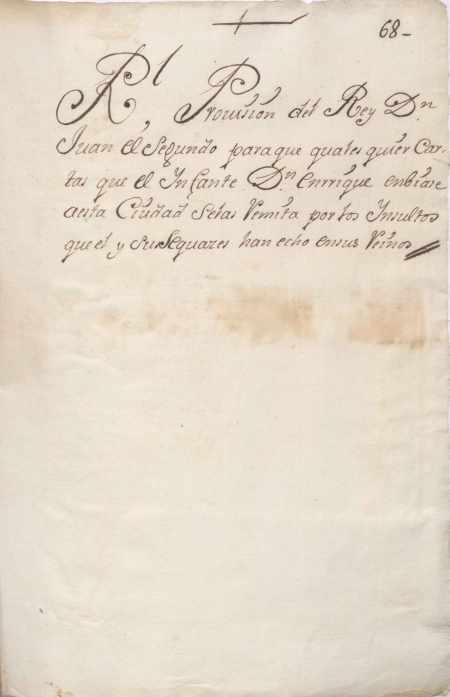 68-
Rl Provision del Rey Dn
Juan el Segundo para que quales quier Car-
tas que el Infante Dn Enrrique enbiase
aesta Ciudad Selas Remita por los Insultos
que el y sus Sequazes han echo ensus Reinos